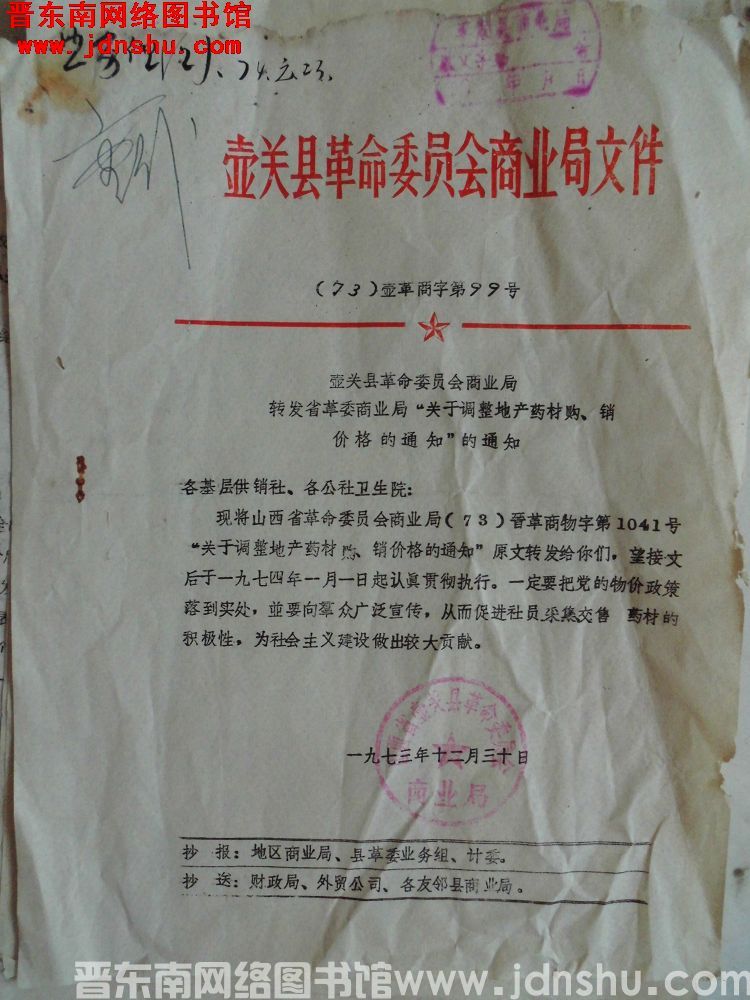 晋东南网络图书馆
www.jdnshu.com
壶关县革命委员会商业局文件
(73)壶革商字第99号
壶关县革命委员会商业局
转发省革委商业局“关于调整地产药材购、销
价格的通知”的通知
各基层供销社、各公社卫生院:
现将山西省革命委员会商业局(73)晋革商物字第1041号
“关于调整地产药材购、销价格的通知”原文转发给你们,望接文
后于一九七四年一月一日起认真贯彻执行。一定要把党的物价政策
落到实处,並要向羣众广泛宣传,从而促进社员采集交售 药材的
积极性,为社会主义建设做出较大贡献。
西省壶关县革命委员会
商业局
一九七三年十二月三十日
抄 报:地区商业局、县革委业务组、计委。
抄 送:财政局、外贸公司、各友邻县商业局。
晋东南网络图书馆www.jdnshu.com